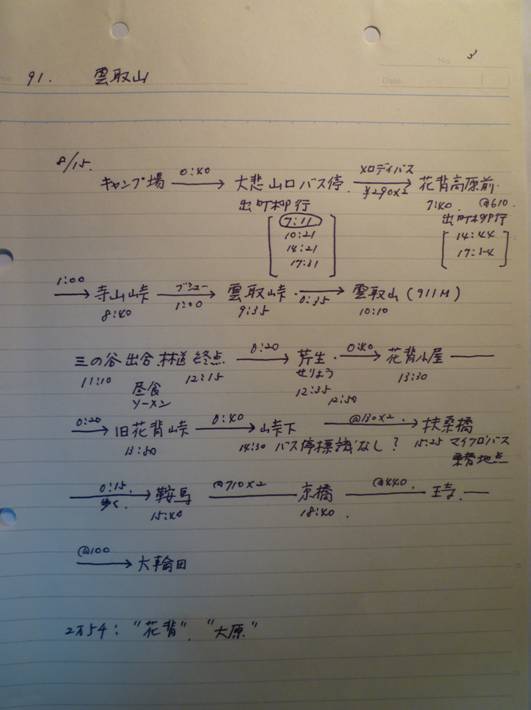 No. 3
Date
91. 雲取山
8/15.
キャンプ場 0:40 大悲山口バス停. メロディバス ¥290×2 花背高原前.
出町柳行 7:40 @610
7:11 出町柳行
10:21 14:44
14:21 17:34
17:31
1:00 寺山峠 ブシュー 1:00 雲取峠. 0:35 雲取山(911M)
8:40 9:35 10:10
三の谷出合 林道終点 0:20 芹生 0:40 花背小屋
11:10 12:15 せりょう 13:30
昼食 12:35
ソーメン 12:50
0:20 旧花背峠 0:40 山峠下 @130×2 扶桑橋
13:50 14:30 バス停標識なし? 15:25 マイクロバス
乗替地点
0:15. 歩く. 鞍馬 @710×2 京橋 @440
15:40 18:40.
@100 大輪田
2万5千: "花背". "大原"